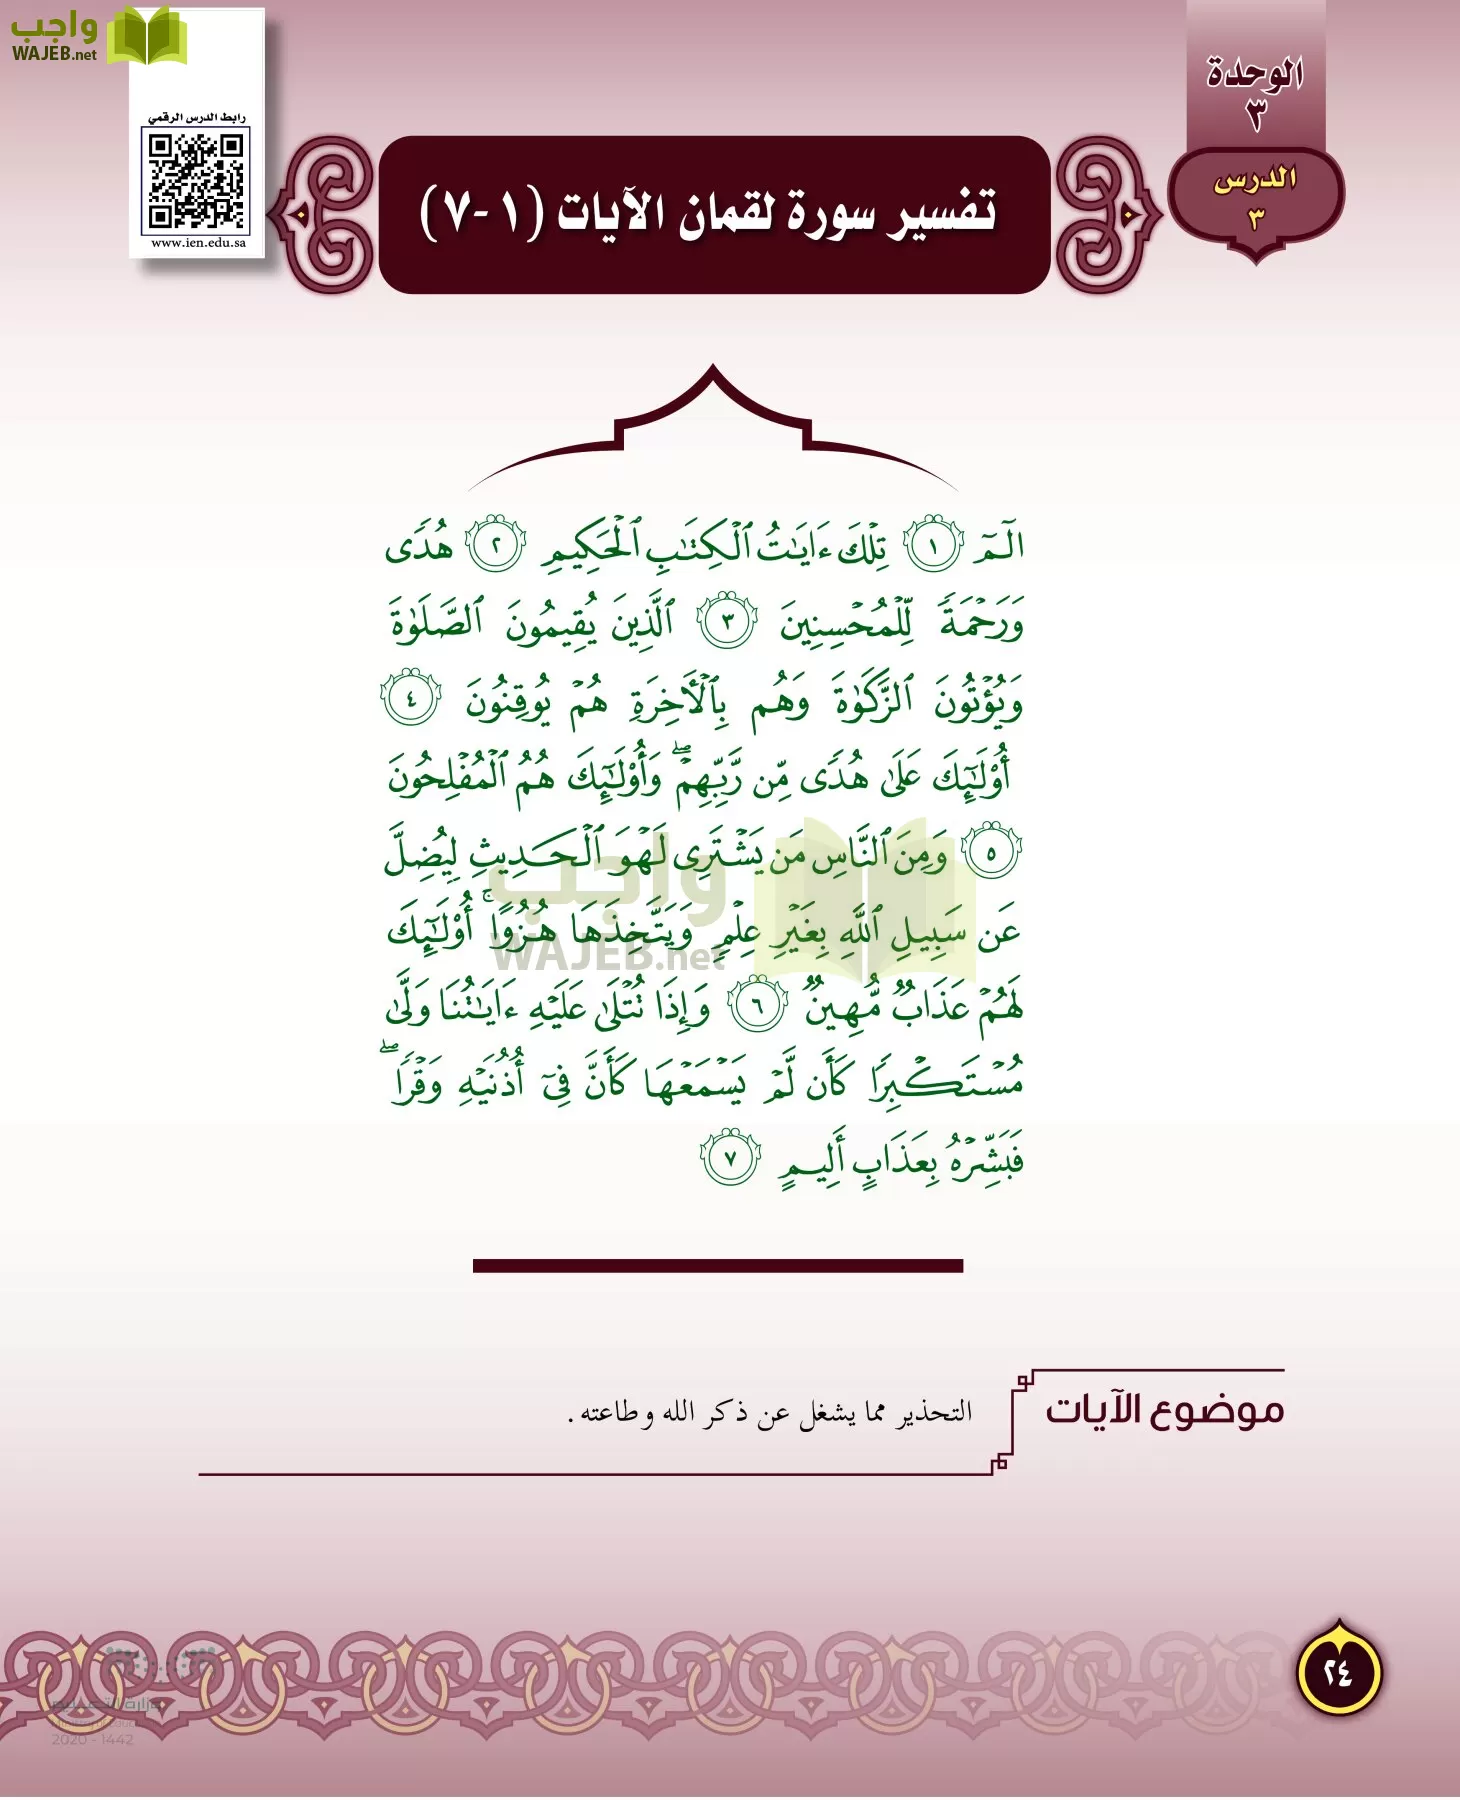 واجب
WAJEB.net
رابط الدرس الرقمي
www.ien.edu.sa
الوحدة
٣
الدرس
٣
تفسير سورة لقمان الآيات (١-٧)
الٓمٓ ١ تِلۡكَ ءَايَٰتُ ٱلۡكِتَٰبِ ٱلۡحَكِيمِ ٢ هُدٗى
وَرَحۡمَةٗ لِّلۡمُحۡسِنِينَ ٣ ٱلَّذِينَ يُقِيمُونَ ٱلصَّلَوٰةَ
وَيُؤۡتُونَ ٱلزَّكَوٰةَ وَهُم بِٱلۡأٓخِرَةِ هُمۡ يُوقِنُونَ ٤
أُوْلَٰٓئِكَ عَلَىٰ هُدٗى مِّن رَّبِّهِمۡۖ وَأُوْلَٰٓئِكَ هُمُ ٱلۡمُفۡلِحُونَ
٥ وَمِنَ ٱلنَّاسِ مَن يَشۡتَرِي لَهۡوَ ٱلۡحَدِيثِ لِيُضِلَّ
عَن سَبِيلِ ٱللَّهِ بِغَيۡرِ عِلۡمٖ وَيَتَّخِذَهَا هُزُوًاۚ أُوْلَٰٓئِكَ
لَهُمۡ عَذَابٞ مُّهِينٞ ٦ وَإِذَا تُتۡلَىٰ عَلَيۡهِ ءَايَٰتُنَا وَلَّىٰ
مُسۡتَكۡبِرٗا كَأَن لَّمۡ يَسۡمَعۡهَا كَأَنَّ فِيٓ أُذُنَيۡهِ وَقۡرٗاۖ
فَبَشِّرۡهُ بِعَذَابٍ أَلِيمٍ ٧
واجب
WAJEB.net
موضوع الآيات
التحذير مما يشغل عن ذكر الله وطاعته.
٢٤
وزارة التعليم
Ministry of Education
2020 - 1442